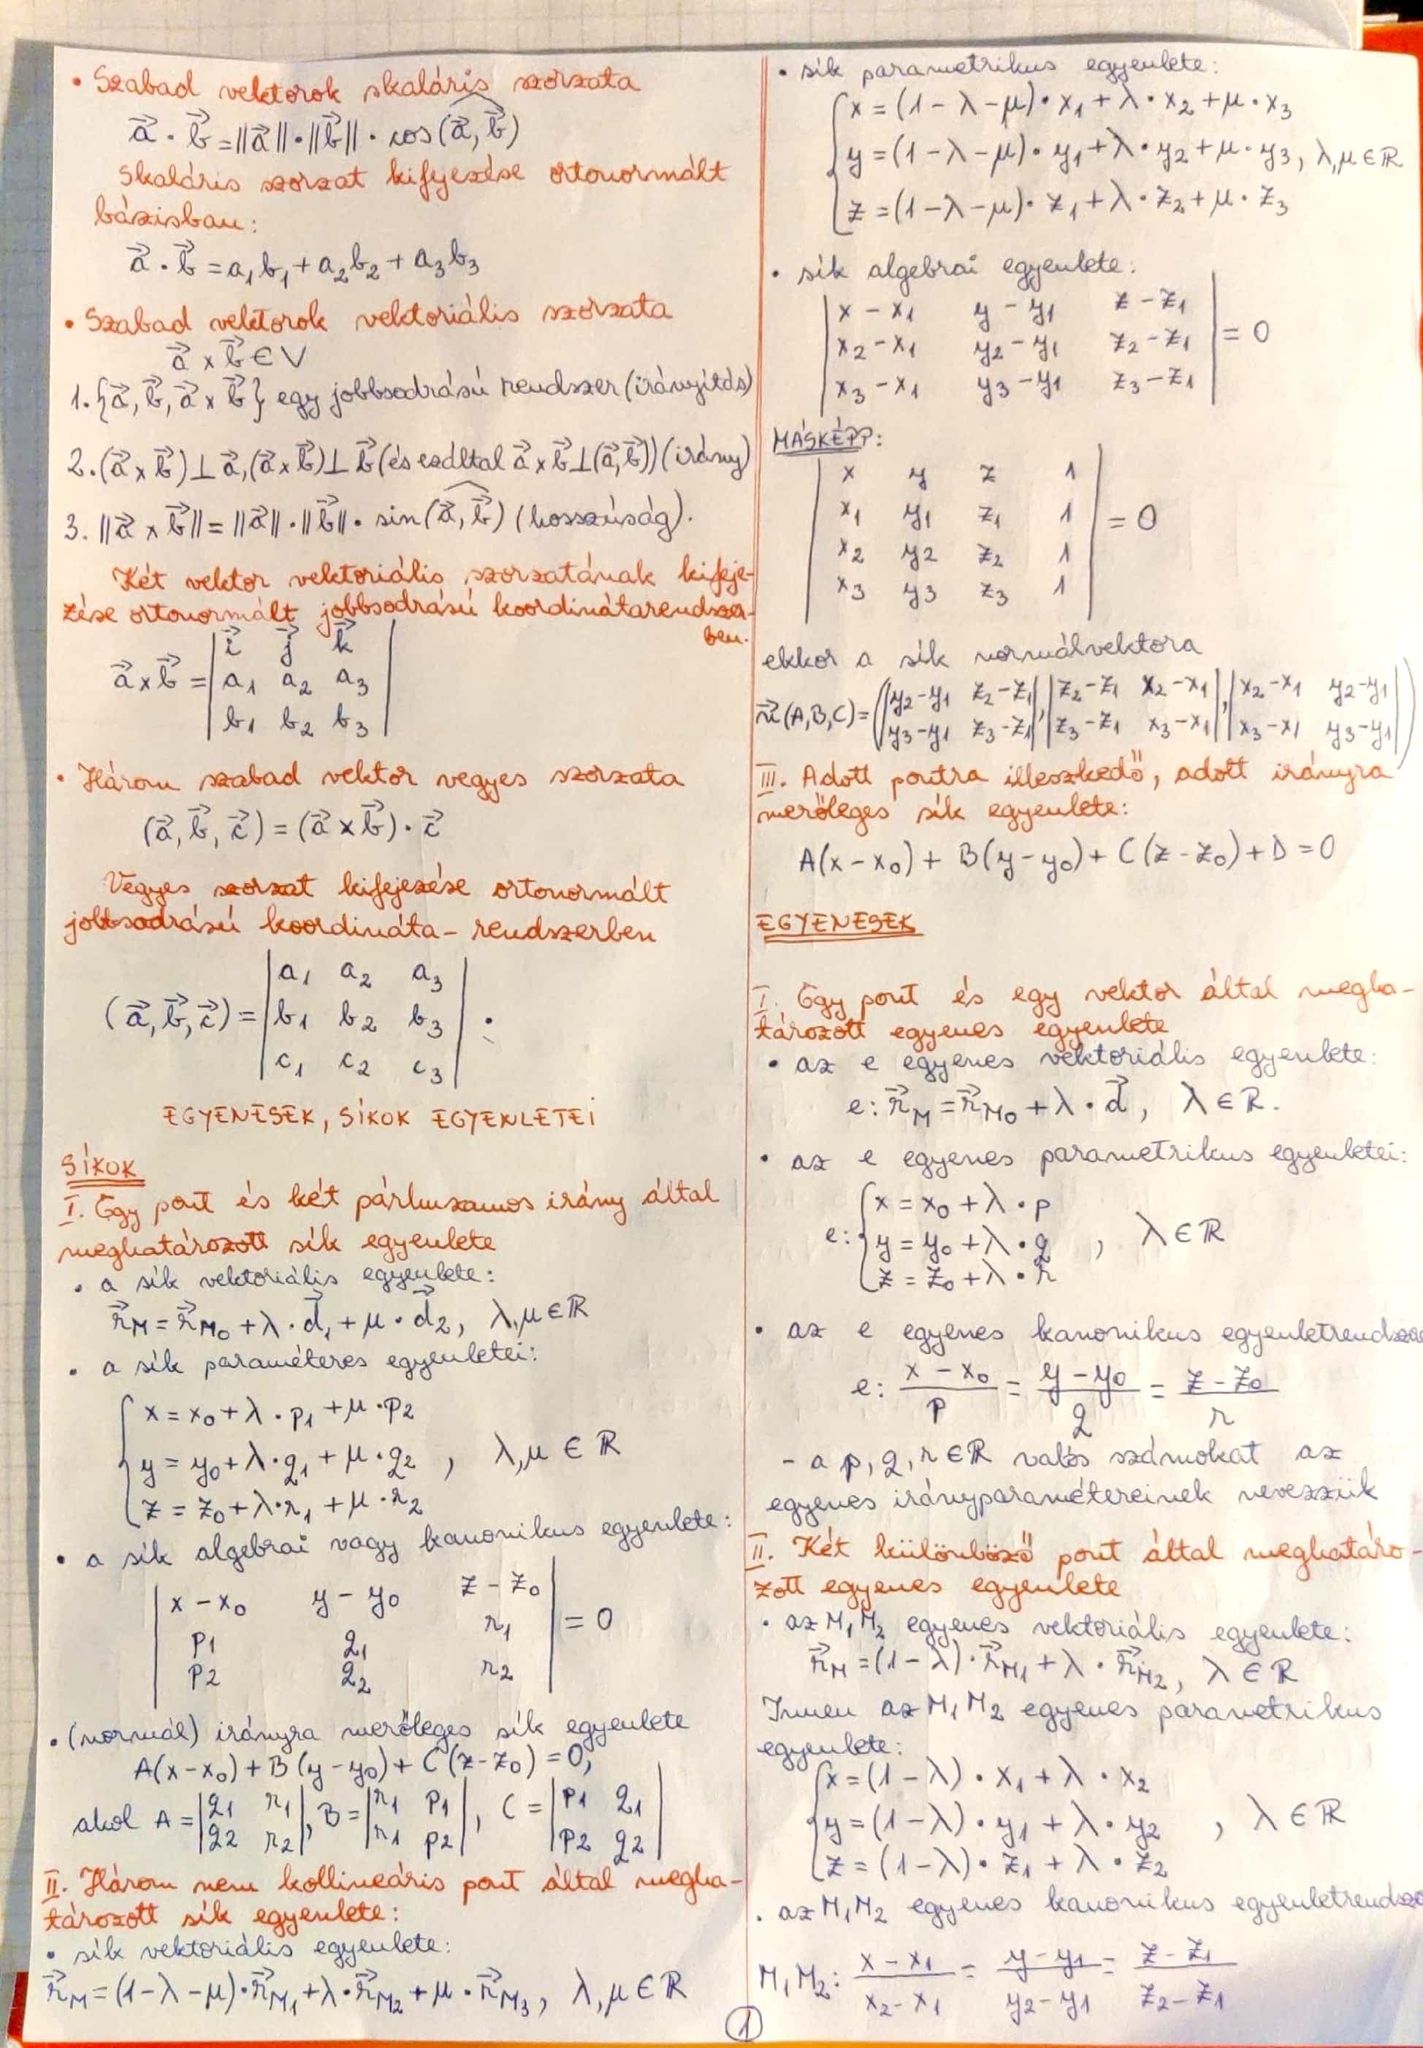 • Szabad vektorok skaláris szorzata
a⃗ · b⃗ = ||a⃗|| · ||b⃗|| · cos(a⃗, b⃗)
Skaláris szorzat kifejezése ortonormált
bázisban:
a⃗ · b⃗ = a₁b₁ + a₂b₂ + a₃b₃
• Szabad vektorok vektoriális szorzata
a⃗ × b⃗ ∈ V
1. {a⃗, b⃗, a⃗ × b⃗} egy jobbsodrású rendszer (irányítás)
2. (a⃗ × b⃗) ⊥ a⃗, (a⃗ × b⃗) ⊥ b⃗ (és ezáltal a⃗ × b⃗ ⊥ (a⃗, b⃗)) (irány)
3. ||a⃗ × b⃗|| = ||a⃗|| · ||b⃗|| · sin(a⃗, b⃗) (hosszúság).
Két vektor vektoriális szorzatának kifeje-
zése ortonormált jobbsodrású koordinátarendszer-
ben.
a⃗ × b⃗ = | i⃗ j⃗ k⃗ |
| a₁ a₂ a₃ |
| b₁ b₂ b₃ |
• Három szabad vektor vegyes szorzata
(a⃗, b⃗, c⃗) = (a⃗ × b⃗) · c⃗
Vegyes szorzat kifejezése ortonormált
jobbsodrású koordináta-rendszerben
(a⃗, b⃗, c⃗) = | a₁ a₂ a₃ |
| b₁ b₂ b₃ |
| c₁ c₂ c₃ | .
EGYENESEK, SÍKOK EGYENLETEI
SÍKOK
I. Egy pont és két párhuzamos irány által
meghatározott sík egyenlete
• a sík vektoriális egyenlete:
r⃗_M = r⃗_M₀ + λ · d⃗₁ + μ · d⃗₂, λ, μ ∈ ℝ
• a sík paraméteres egyenletei:
{ x = x₀ + λ · p₁ + μ · p₂
y = y₀ + λ · q₁ + μ · q₂ , λ, μ ∈ ℝ
z = z₀ + λ · r₁ + μ · r₂
• a sík algebrai vagy kanonikus egyenlete:
| x - x₀ y - y₀ z - z₀ |
| p₁ q₁ r₁ | = 0
| p₂ q₂ r₂ |
• (normál) irányra merőleges sík egyenlete
A(x - x₀) + B(y - y₀) + C(z - z₀) = 0,
ahol A = | q₁ r₁ |, B = | r₁ p₁ |, C = | p₁ q₁ |
| q₂ r₂ | | r₁ p₂ | | p₂ q₂ |
II. Három nem kollineáris pont által megha-
tározott sík egyenlete:
• sík vektoriális egyenlete:
r⃗_M = (1 - λ - μ) · r⃗_M₁ + λ · r⃗_M₂ + μ · r⃗_M₃, λ, μ ∈ ℝ
• sík parametrikus egyenlete:
{ x = (1 - λ - μ) · x₁ + λ · x₂ + μ · x₃
y = (1 - λ - μ) · y₁ + λ · y₂ + μ · y₃, λ, μ ∈ ℝ
z = (1 - λ - μ) · z₁ + λ · z₂ + μ · z₃
• sík algebrai egyenlete:
| x - x₁ y - y₁ z - z₁ |
| x₂ - x₁ y₂ - y₁ z₂ - z₁ | = 0
| x₃ - x₁ y₃ - y₁ z₃ - z₁ |
MÁSKÉPP:
| x y z 1 |
| x₁ y₁ z₁ 1 | = 0
| x₂ y₂ z₂ 1 |
| x₃ y₃ z₃ 1 |
ekkor a sík normálvektora
n⃗(A, B, C) = (| y₂-y₁ z₂-z₁ |, | z₂-z₁ x₂-x₁ |, | x₂-x₁ y₂-y₁ |
| y₃-y₁ z₃-z₁ | | z₃-z₁ x₃-x₁ | | x₃-x₁ y₃-y₁ |)
III. Adott pontra illeszkedő, adott irányra
merőleges sík egyenlete:
A(x - x₀) + B(y - y₀) + C(z - z₀) + D = 0
EGYENESEK
I. Egy pont és egy vektor által megha-
tározott egyenes egyenlete
• az e egyenes vektoriális egyenlete:
e: r⃗_M = r⃗_M₀ + λ · d⃗, λ ∈ ℝ.
• az e egyenes parametrikus egyenletei:
{ x = x₀ + λ · p
e: y = y₀ + λ · q , λ ∈ ℝ
z = z₀ + λ · r
• az e egyenes kanonikus egyenletrendsze
e: (x - x₀)/p = (y - y₀)/q = (z - z₀)/r
- a p, q, r ∈ ℝ valós számokat az
egyenes irányparamétereinek nevezzük
II. Két különböző pont által meghatáro-
zott egyenes egyenlete
• az M₁M₂ egyenes vektoriális egyenlete:
r⃗_M = (1 - λ) · r⃗_M₁ + λ · r⃗_M₂, λ ∈ ℝ
Innen az M₁M₂ egyenes parametrikus
egyenlete:
{ x = (1 - λ) · x₁ + λ · x₂
y = (1 - λ) · y₁ + λ · y₂ , λ ∈ ℝ
z = (1 - λ) · z₁ + λ · z₂
• az M₁M₂ egyenes kanonikus egyenletrendsz
M₁M₂: (x - x₁)/(x₂ - x₁) = (y - y₁)/(y₂ - y₁) = (z - z₁)/(z₂ - z₁)
1